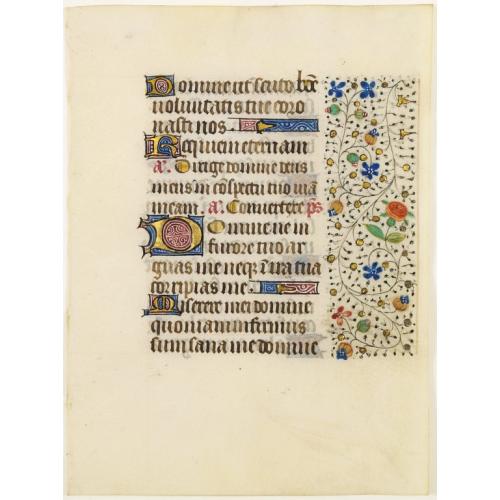 Domine ut scuto bōe
voluntatis tue coro
nasti nos
Requiem eternam
a'. Dirige domine deus
meus in cōspectu tuo viā
meam. a'. Convertere ps
Domine ne in
furore tuo ar
guas me neqȝ ī ira tua
corripias me
Miserere mei domine
quoniam infirmus
sum sana me domine